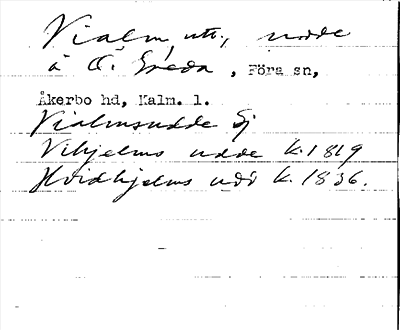 Vialm, utt., udde
å Ö. Greda, Föra sn,
Åkerbo hd, Kalm. l.
Vialmsudde Gj
Vihjelms udde k. 1819
Hvidhjelms udd k. 1836.